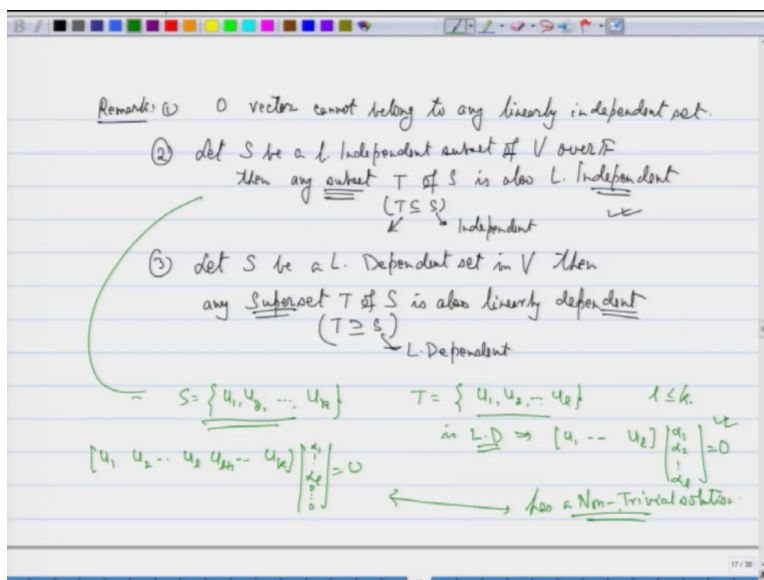 Remark: ① 0 vector cannot belong to any linearly independent set.
② Let S be a l. Independent subset of V over F
then any subset T of S is also L. Independent
(T ⊆ S)
Independent
③ Let S be a L. Dependent set in V then
any Superset T of S is also linearly dependent
(T ⊇ S)
L. Dependent
S = {u₁, u₂, ..., uₖ} T = {u₁, u₂, ... uₗ} l ≤ k.
is L.D ⇒ [u₁ ... uₗ] [α₁ α₂ ⋮ αₗ] = 0
[u₁ u₂ ... uₗ uₗ₊₁ ... uₖ] [α₁ ⋮ αₗ 0 ⋮ 0] = 0
has a Non-Trivial solution.
17 / 30